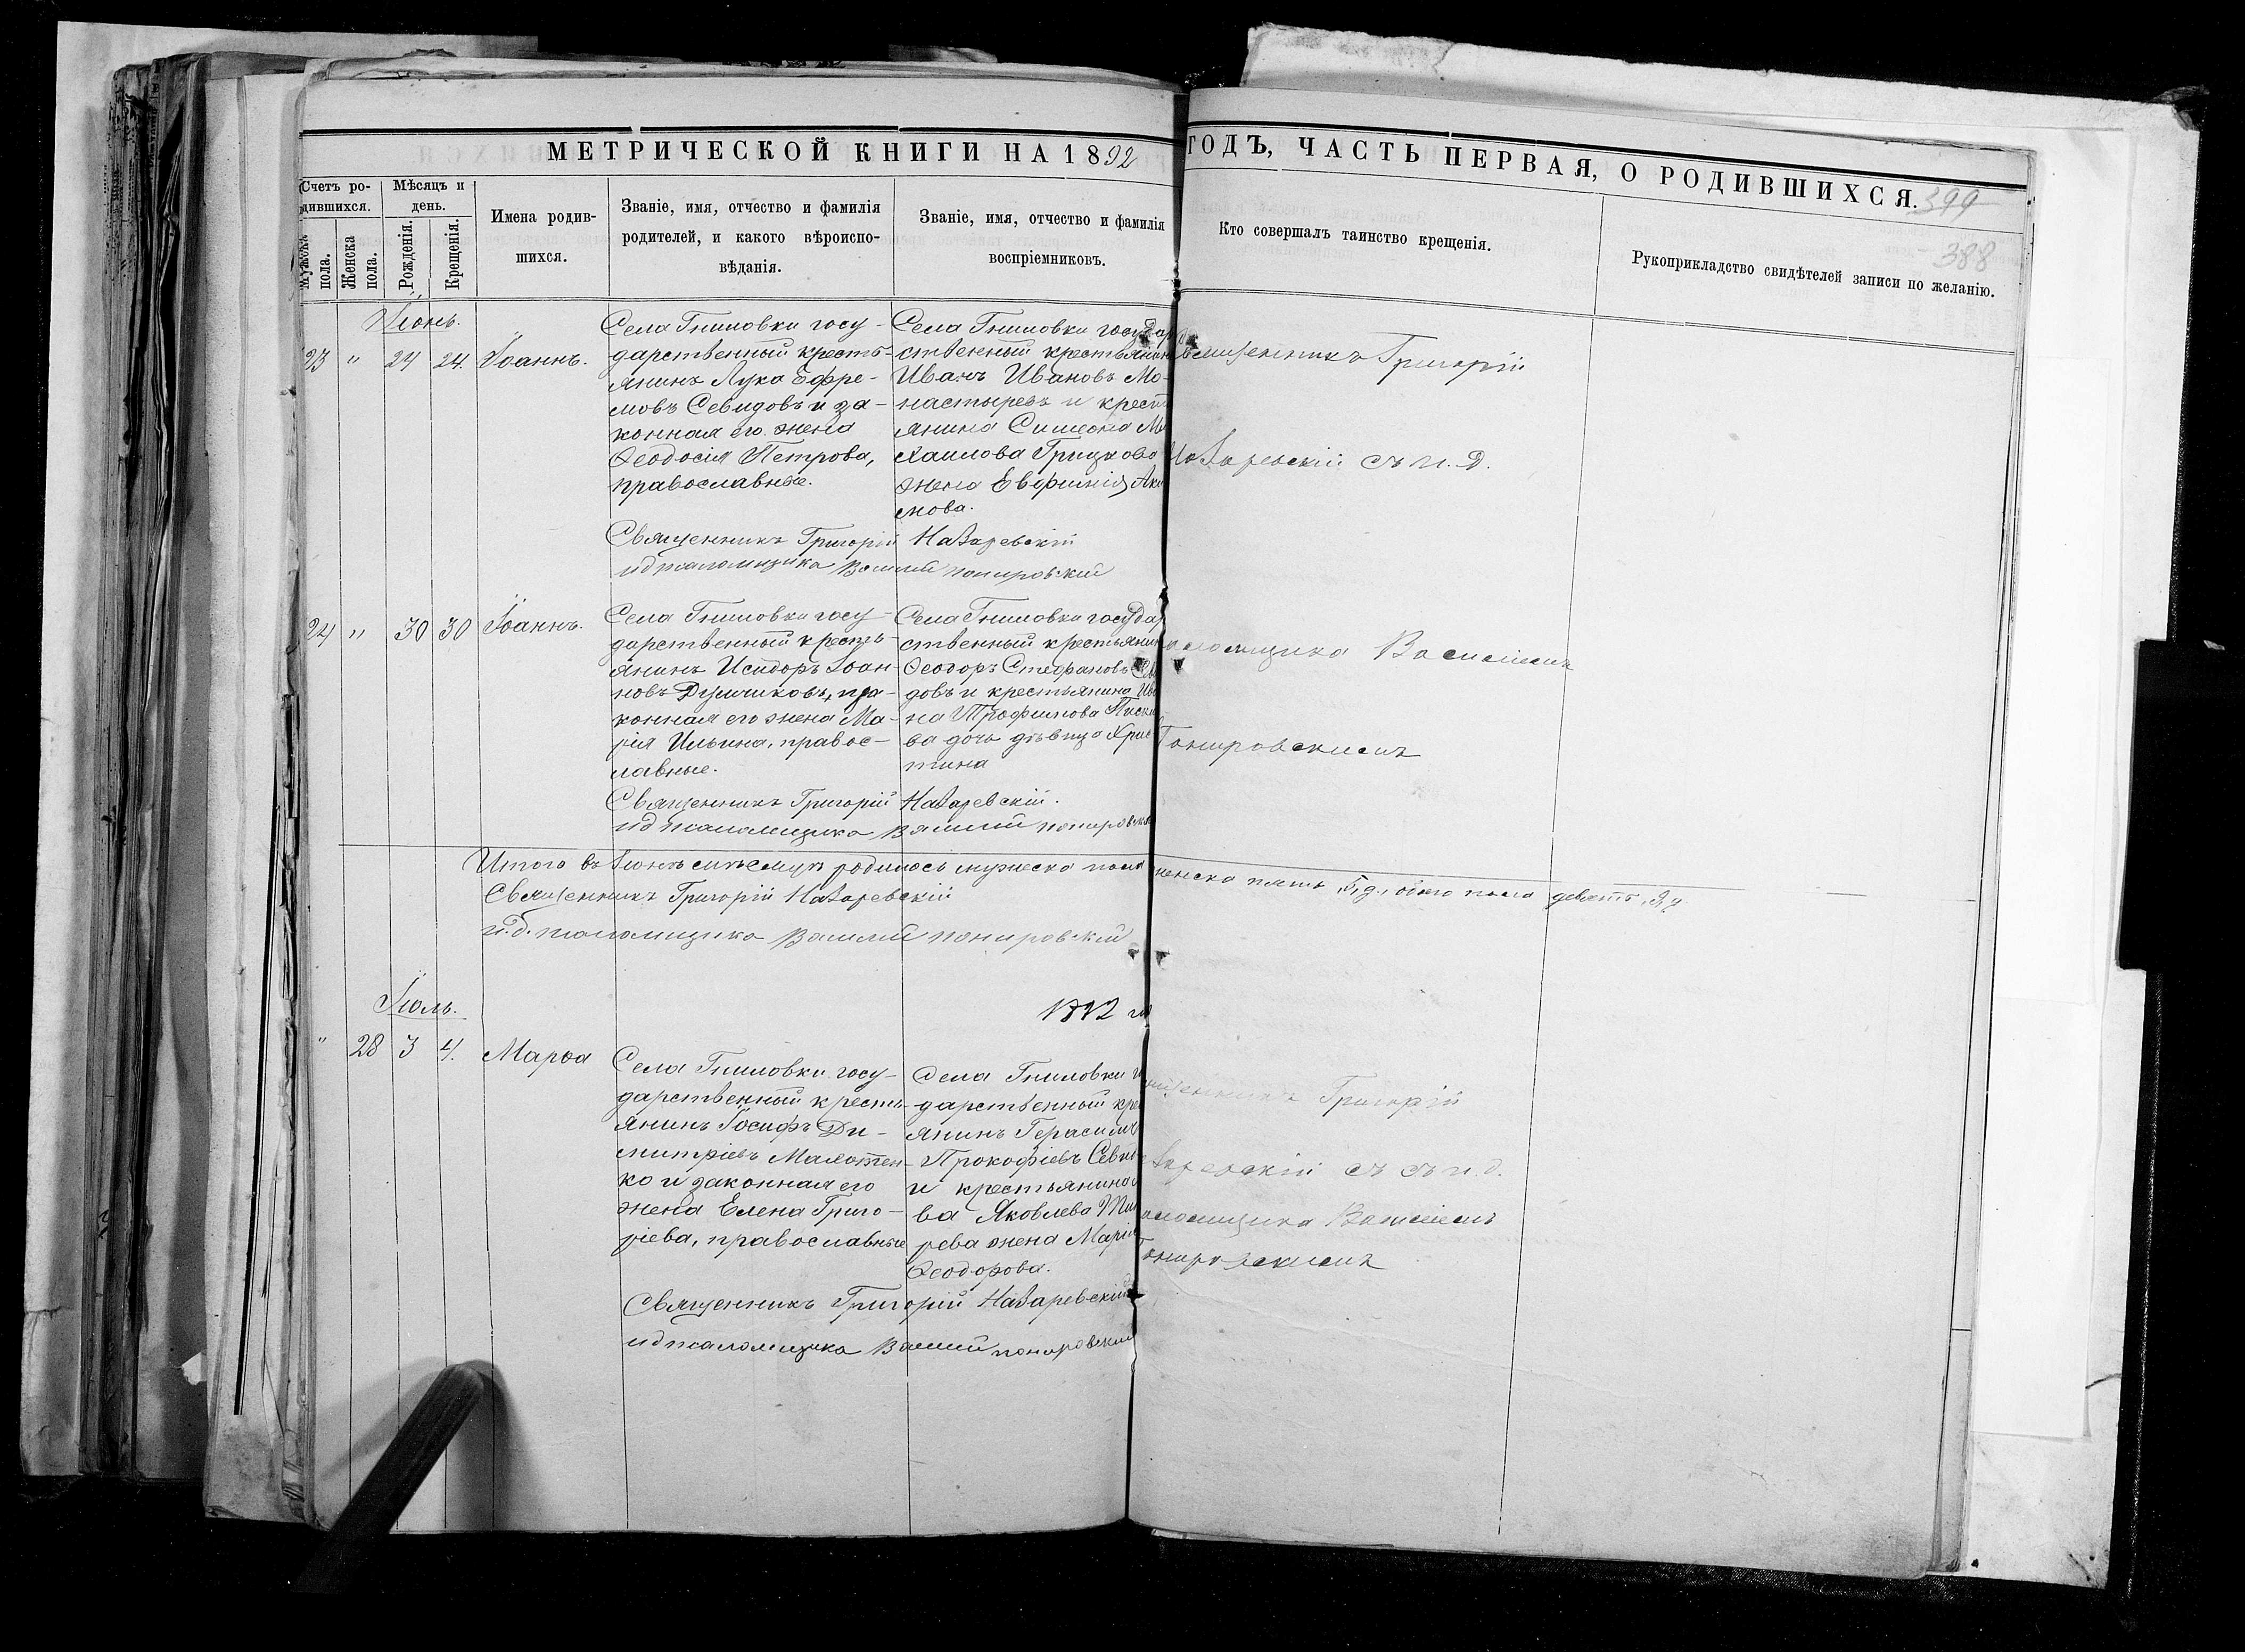 МЕТРИЧЕСКОЙ КНИГИ НА 1892
ГОДЪ, ЧАСТЬ ПЕРВАЯ, О РОДИВШИХСЯ.
399
388
Счетъ ро-
дившихся.
Мужска
пола.
Женска
пола.
Мѣсяцъ и
день.
Рожденія.
Крещенія.
Имена родив-
шихся.
Званіе, имя, отчество и фамилія
родителей, и какого вѣроиспо-
вѣданія.
Званіе, имя, отчество и фамилія
воспріемниковъ.
Кто совершалъ таинство крещенія.
Рукоприкладство свидѣтелей записи по желанію.
Іюнь.
23 " 24 24. Іоаннъ.
Села Гниловки госу-
дарственный кресть-
янинъ Лука Ефре-
мовъ Севидовъ и за-
конная его жена
Ѳеодосія Петрова,
православные.
Села Гниловки государ
ственный крестьянинъ
Иванъ Ивановъ Мо-
настыревъ и крест
янина Симеона Ми
хаилова Грицкова
жена Евфимія Аки
мова.
Священникъ Григорій
Назаревскій съ и. д.
Священникъ Григорій Назаревскій
ид псаломщика Василій Понировскій
24 " 30 30 Іоаннъ.
Села Гниловки госу-
дарственный кресть-
янинъ Исидоръ Іоан-
новъ Думчиковъ, и за-
конная его жена Ма-
рія Ильина, правос-
лавные.
Села Гниловки государ
ственный крестьянин
Ѳеодоръ Стефановъ Сев
довъ и крестьянина Ива
на Трофимова Писка
ва дочь дѣвица Хрис
тина
псаломщика Василіемъ
Понировскимъ
Священникъ Григорій Назаревскій.
ид псаломщика Василій Понировскій
Итого въ Іюнѣ мѣсяцѣ родилось мужеска пола женска пять, 5, д., обоего пола девять, 9, д
Священникъ Григорій Назаревскій
и.д. псаломщика Василій Понировскій
Іюль.
1892 го
" 28 3 4. Марѳа
Села Гниловки госу-
дарственный кресть-
янинъ Іосифъ Ди-
митріевъ Малотен-
ко и законная его
жена Елена Григо-
ріева, православные
Села Гниловки г
дарственный кре
янинъ Герасимъ
Прокофіевъ Севи
и крестьянина
ва Яковлева
рева жена Марія
Ѳеодорова.
щенникъ Григорій
заревскій съ и. д.
аломщика Василіемъ
Понировскимъ
Священникъ Григорій Назаревскій
ид псаломщика Василій Понировскій